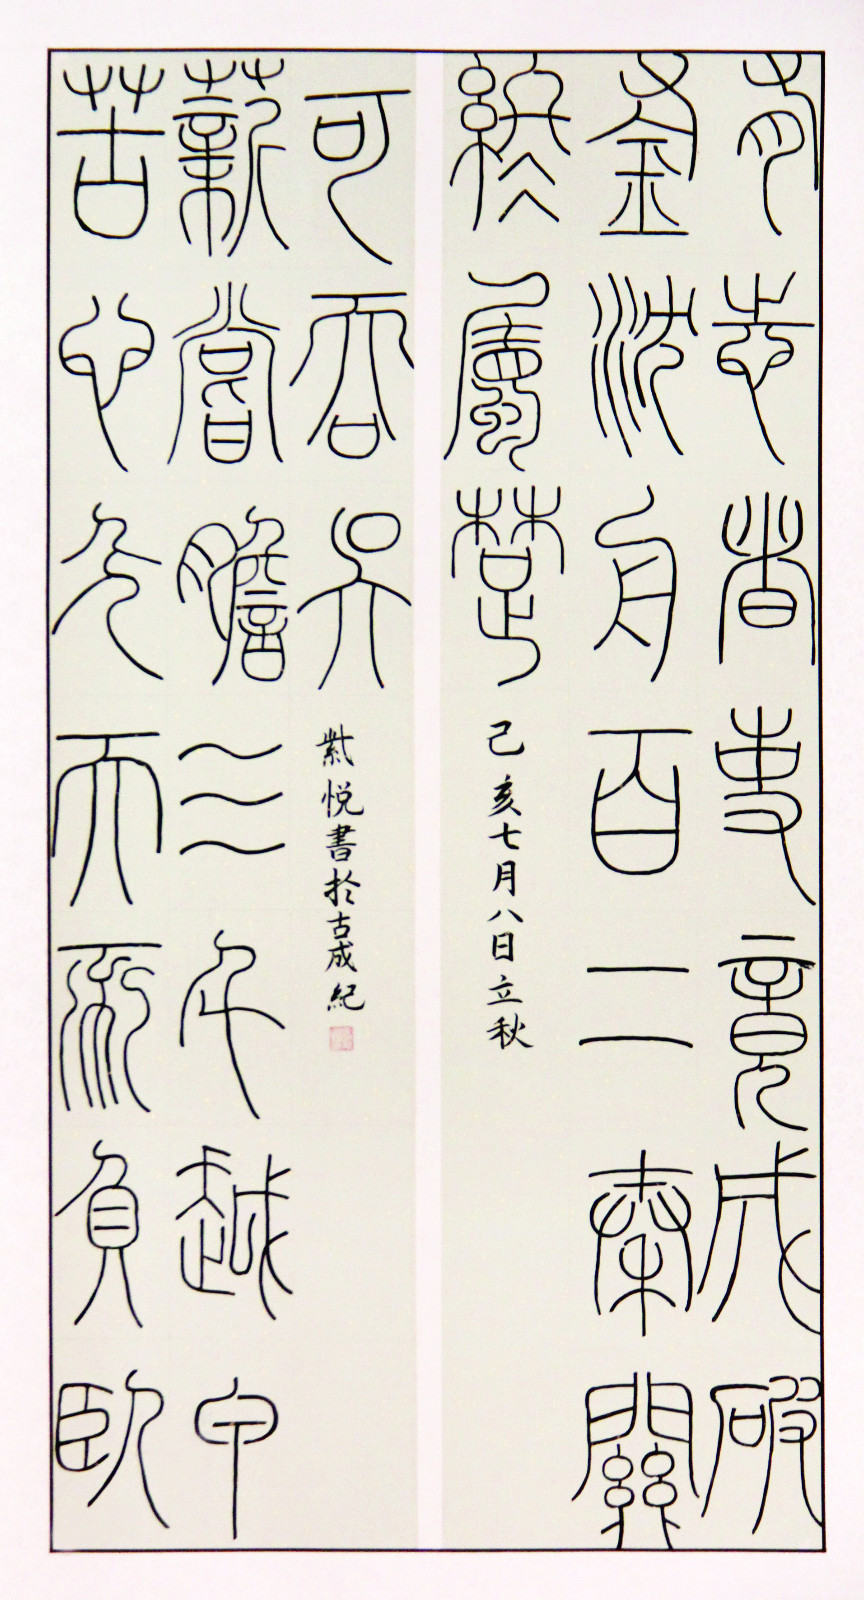 有志者事竟成破
釜沈舟百二秦關
終屬楚
己亥七月八日立秋
苦心人天不負臥
薪嘗膽三千越甲
可吞吳
紫悅書於古成紀